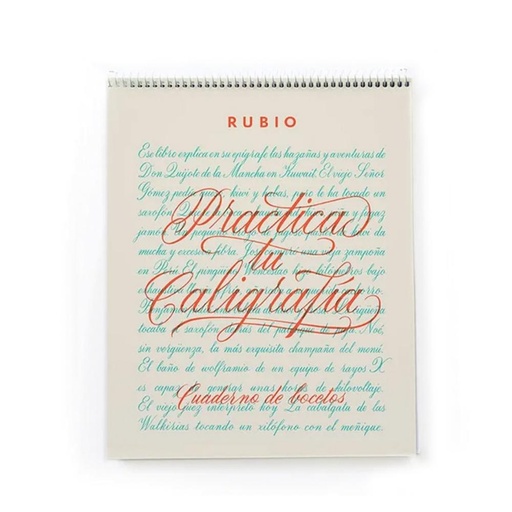 RUBIO
Ese libro explica en su epígrafe las hazañas y aventuras de
Don Quijote de la Mancha en Kuwait. El viejo Señor
Gómez pedía kiwi y habas, pero le ha tocado un
saxofón y fugaz
jamón. pequeño
mucha y excesiva fibra. una vieja zampoña
en Perú. El pingüino Wenceslao hizo kilómetros bajo
Practica
tu
Caligrafía
tocaba el saxofón detrás del palenque de paja. Noé,
sin vergüenza, la más exquisita champaña del menú.
El baño de wolframio de un equipo de rayos X
es capaz de generar unas horas de kilovoltaje.
Cuaderno de bocetos
El viejo juez interpretó hoy La cabalgata de las
Walkirias tocando un xilófono con el meñique.